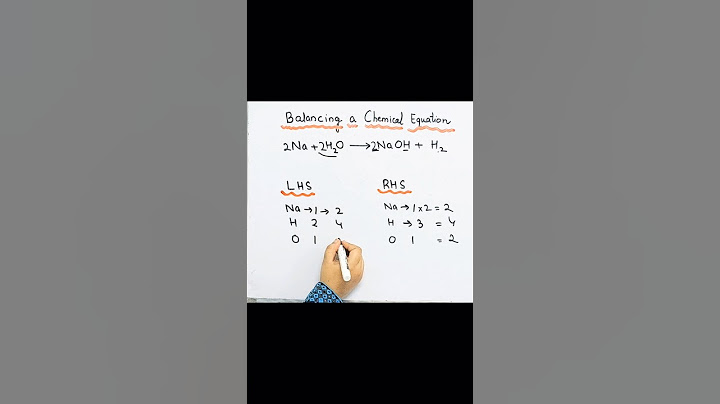 Balancing a Chemical Equation
2Na + 2H₂O ⟶ 2NaOH + H₂
LHS RHS
Na → 1 → 2 Na → 1 × 2 = 2
H 2 4 H → 3 = 4
O 1 O 1 = 2